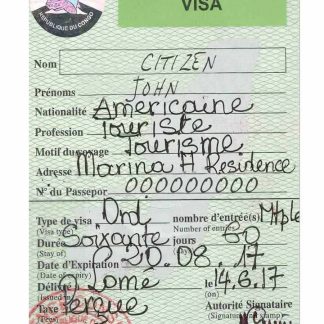 VISA
REPUBLIQUE DU CONGO
Nom CITIZEN
Prénoms JOHN
Nationalité Américaine
Profession Touriste
Motif du voyage Tourisme
Adresse Marina H Residence
N° du Passepor 000000000
Type de visa Ord nombre d'entrée(s) Mtple
(Visa type) Number of entries
Durée Soixante jours 60
(Stay of) days
Date d'Expiration 20.08.17
(Date of expiry)
Délivré à Lomé le 14.6.17
(Issued in) (on)
Taxe Perçue Autorité Signataire
(Fees) (Signature and stamp)